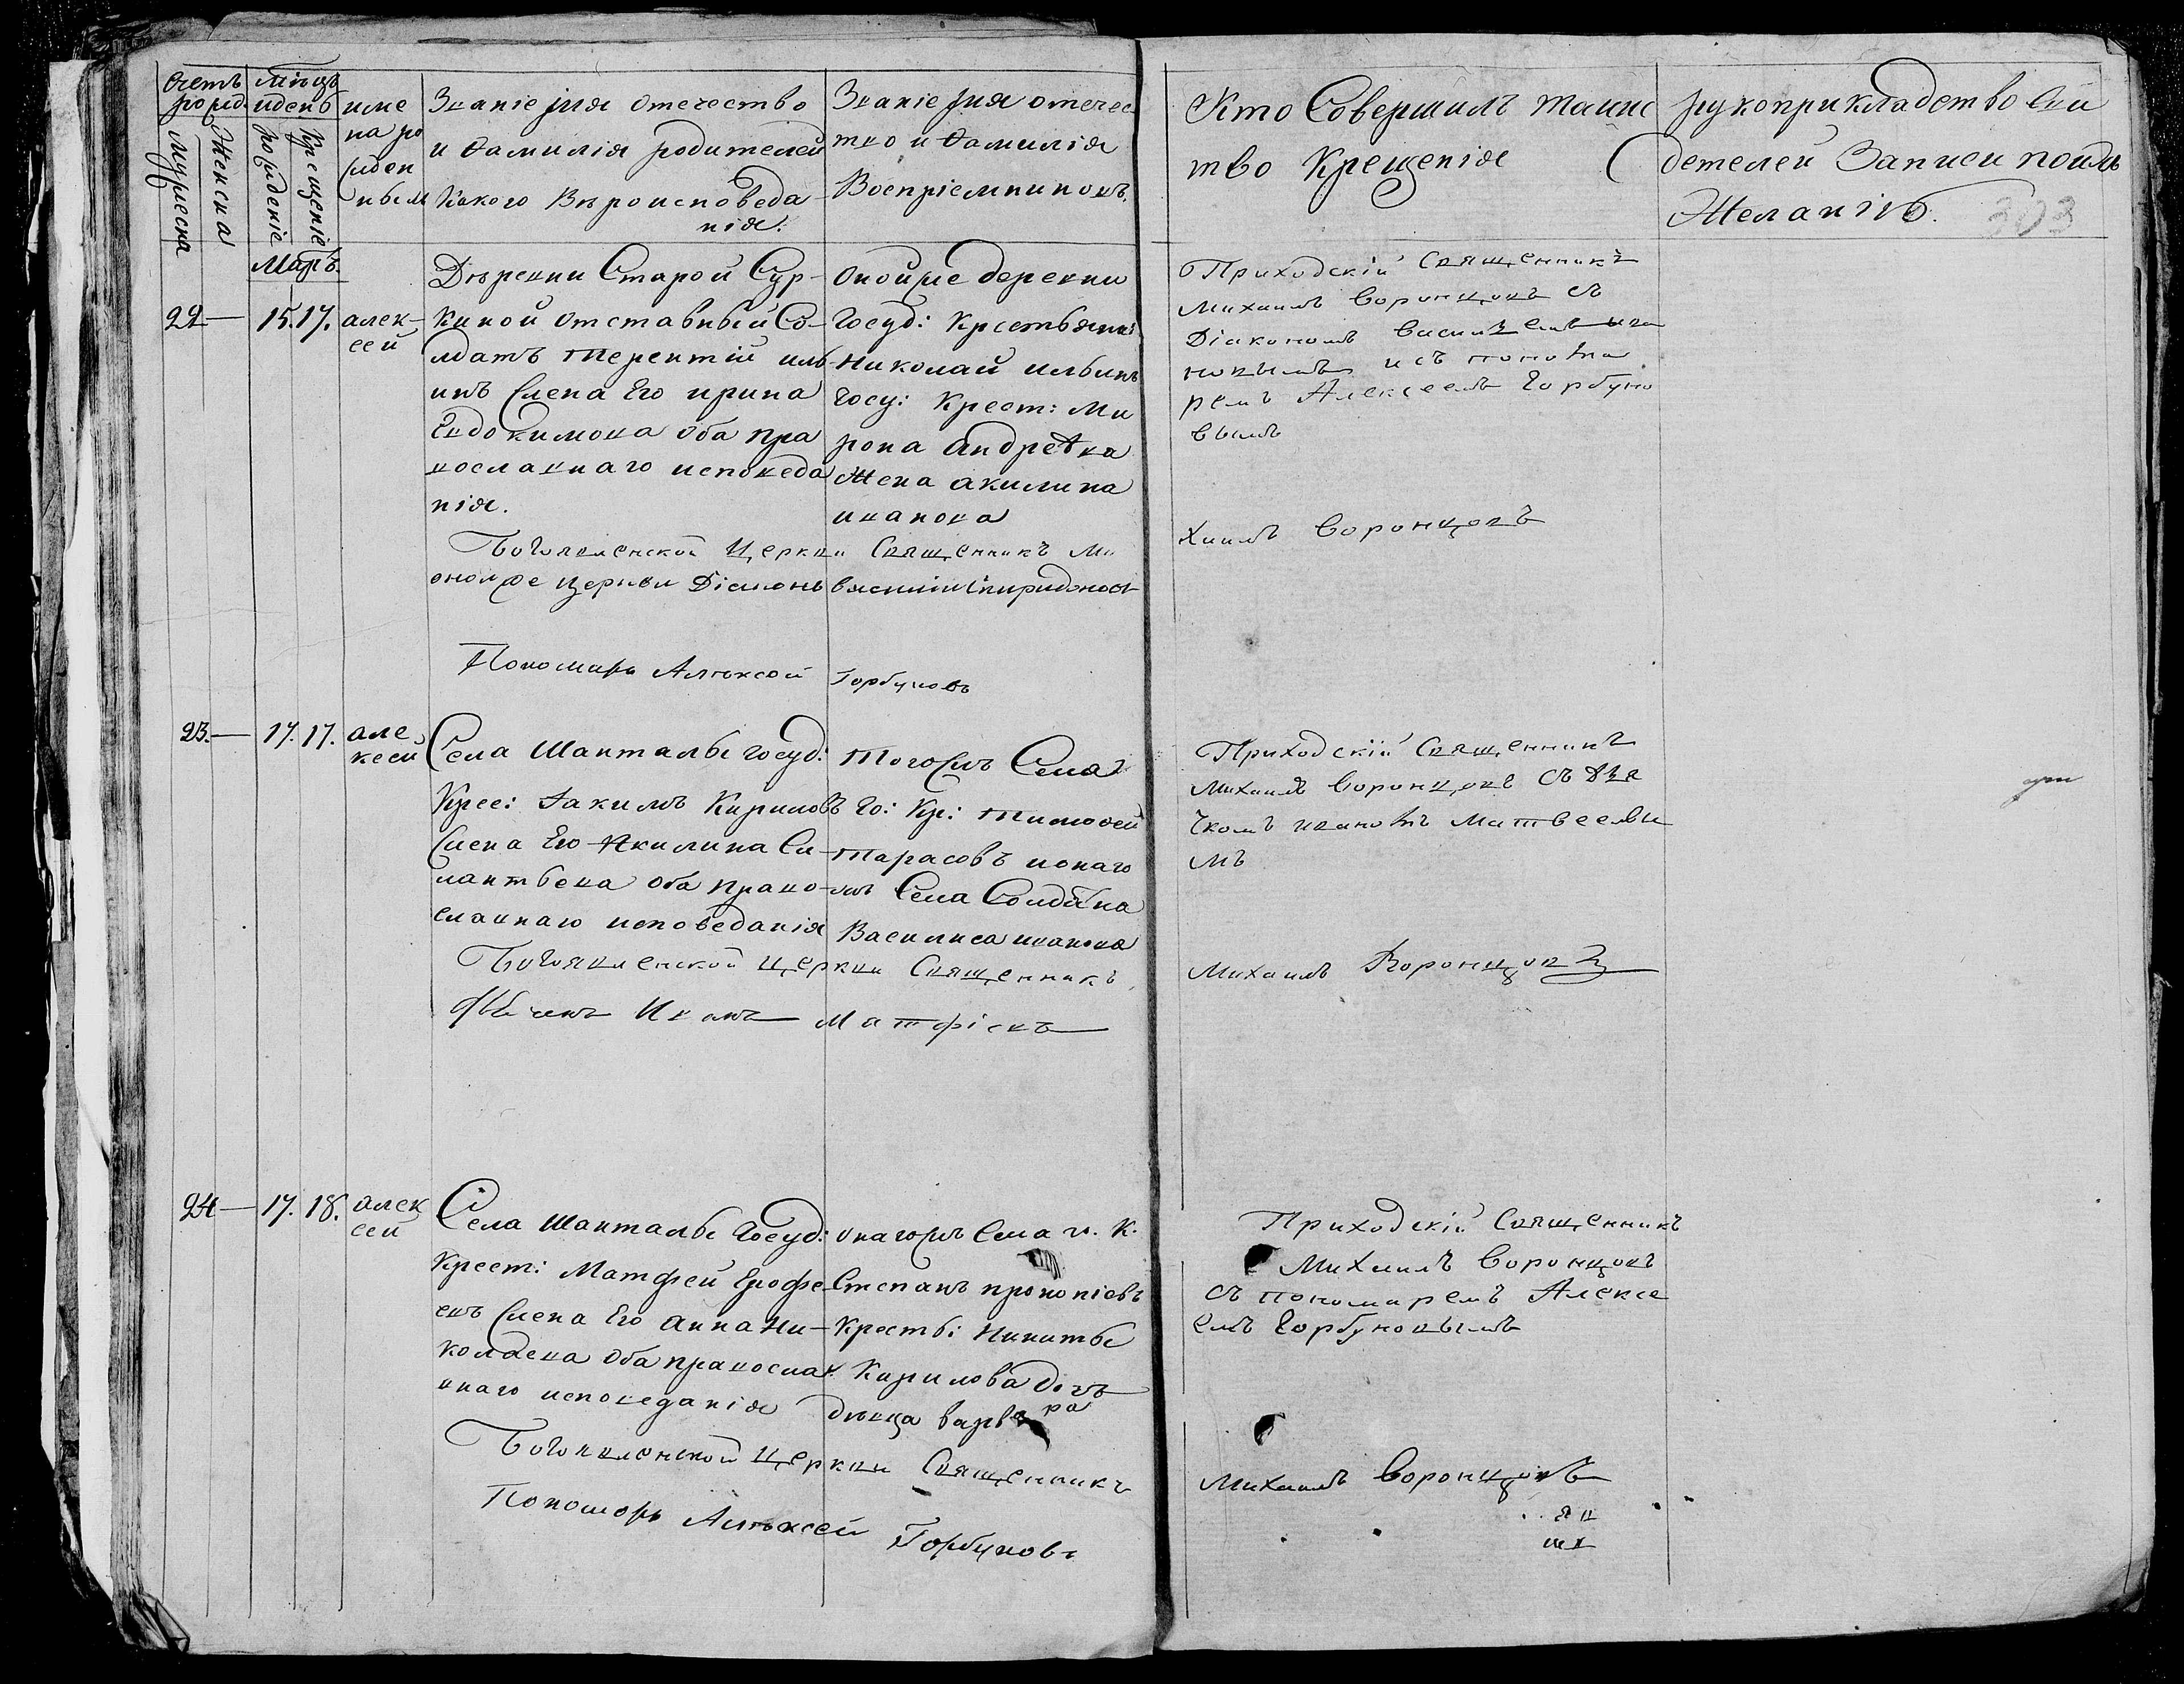 Счетъ рожд.
Мужеска
Женска
Мѣцъ идень
рожденіе
крещеніе
име
на ро
жден
ныхъ
Званіе имя отечество
и Фамилія родителей
Какого Вѣроисповеда
нія.
Званіе имя отечес
тво и Фамилія
Воспріемниковъ.
Кто Совершилъ таинс
тво Крещенія
рукоприкладство Сви
детелей Записи пожъ
Желанію.
303
Марѣ.
22
15. 17.
алек-
сей
Дѣревни Старой Сур-
киной отставный Со-
лдатъ терентій иль
инъ жена Его ирина
Евдокимова оба пра
вославнаго исповеда
нія.
Оной же деревни
Госуд: Крестьянин
Николай ильинъ
Госу: Крест: Ми
рона андреева
Жена акилина
иванова
Приходскій Священникъ
Михаилъ Воронцовъ съ
Діакономъ
новымъ и съ понома
ремъ Алексеемъ Горбуно
вымъ
Богоявленской Церкви Священникъ Ми
хаилъ Воронцовъ
оной же Церкви Діаконъ василий Спиридонов
Пономарь Алѣксей Горбуновъ
23.
17. 17.
але
ксей
Села Шанталы Госуд:
Крес: Иакимъ Кириловъ
жена Его Акилина Си
лантьева оба право
славнаго исповеданія
Тогожъ Села
Го: Кр: тимофей
тарасовъ ионаго
жъ Села Солдатка
Василиса иванова
Приходскій Священникъ
Михаилъ Воронцовъ Съ дья
чкомъ иваномъ Матвеевы
мъ
Богоявленской Церкви Священникъ
Михаилъ Воронцовъ
Дьячекъ Иванъ Матфіевъ
24
17. 18.
алек
сей
Села Шанталы Госуд:
Крест: Матфей Ерофе
евъ жена Его анна Ни-
колаева оба православ
внаго исповеданія
онагожъ Села г. К.
Степанъ прокопіевъ
Кресть: Никиты
Кирилова дочь
дѣвица варвара
Приходскій Священникъ
Михаилъ Воронцовъ
съ пономаремъ Алексе
емъ Горбуновымъ
Богоявленской Церкви Священникъ
Михаилъ Воронцовъ
Пономарь Алѣксей Горбуновъ